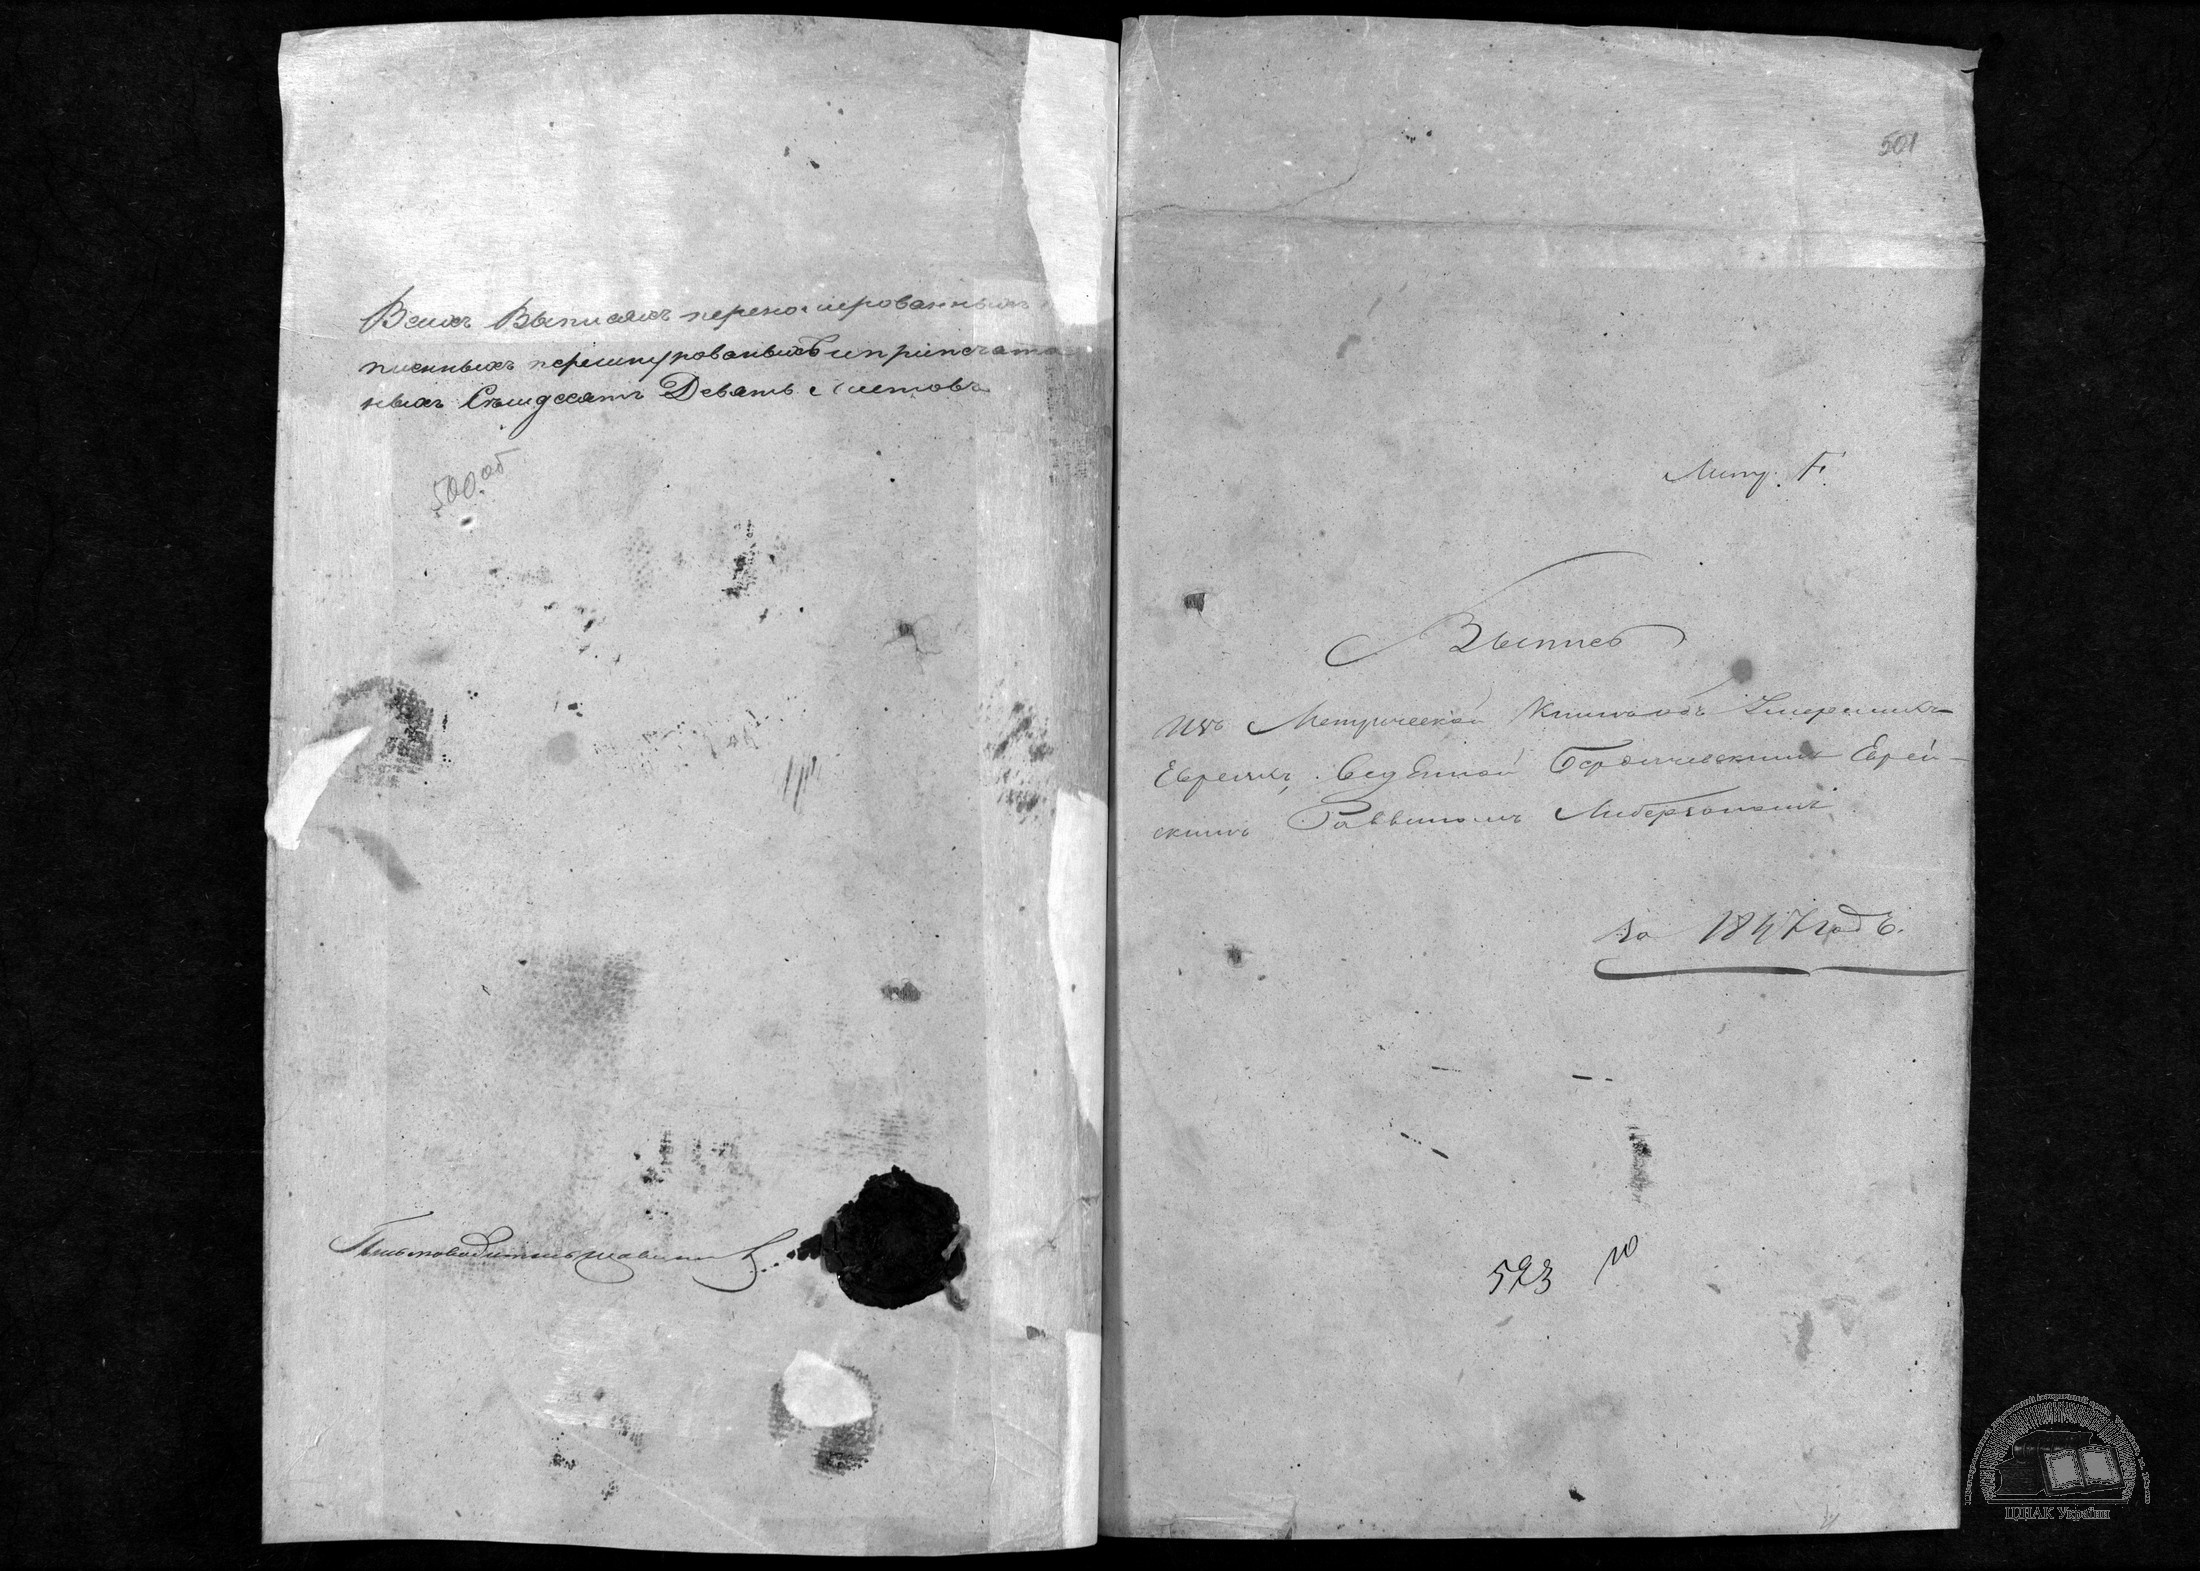 Всихъ Выписяхъ переномерованныхъ
писнныхъ перешнурованныхъ и припечата
ныхъ Съмдесятъ Девять Листовъ
500 об
Письмоводитель
501
Выпись
Изъ Метрической Книги объ Умершихъ
Евреяхъ, Веденной Бердичевскимъ Еврей-
скимъ Раввиномъ Либерзономъ
за 1847 годъ.
593
ЦДІАК України